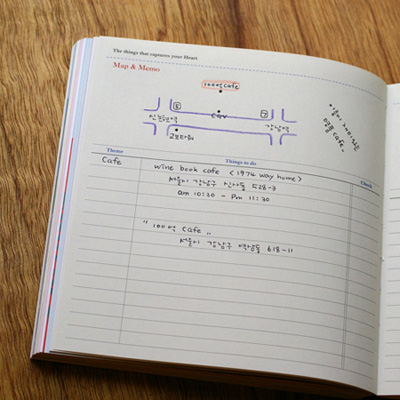 The things that captures your Heart
Map & Memo
100억 cafe
5
7
CGV
신논현역
강남역
교보타워
Theme
Things to do
Check
Cafe
wine book cafe (1974 way home)
서울시 강남구 신사동 528-3
am 10:30 - pm 11:30
" 100억 cafe "
서울시 강남구 역삼동 618-11